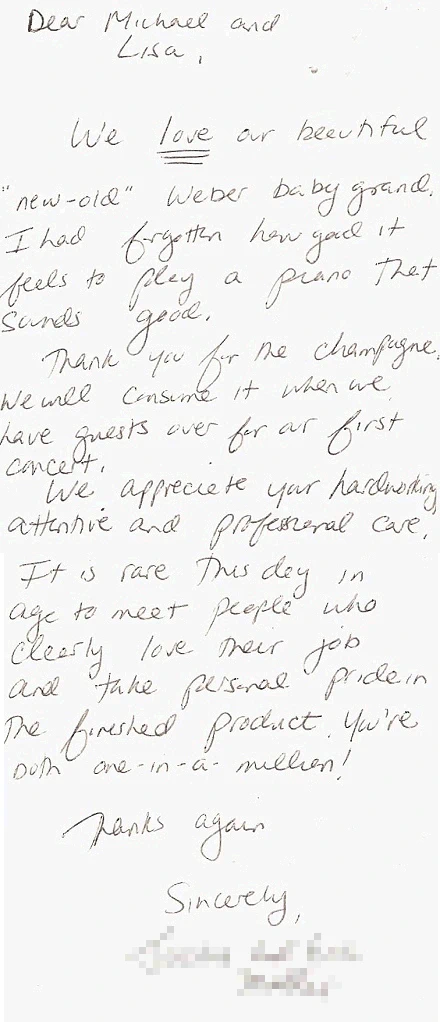 Dear Michael and
Lisa,
We love our beautiful
"new-old" Weber baby grand.
I had forgotten how good it
feels to play a piano that
sounds good.
Thank you for the champagne.
We will consume it when we
have guests over for our first
concert.
We appreciate your hardworking
attentive and professional care.
It is rare this day in
age to meet people who
clearly love their job
and take personal pride in
the finished product. You're
both one-in-a-million!
Thanks again
Sincerely,